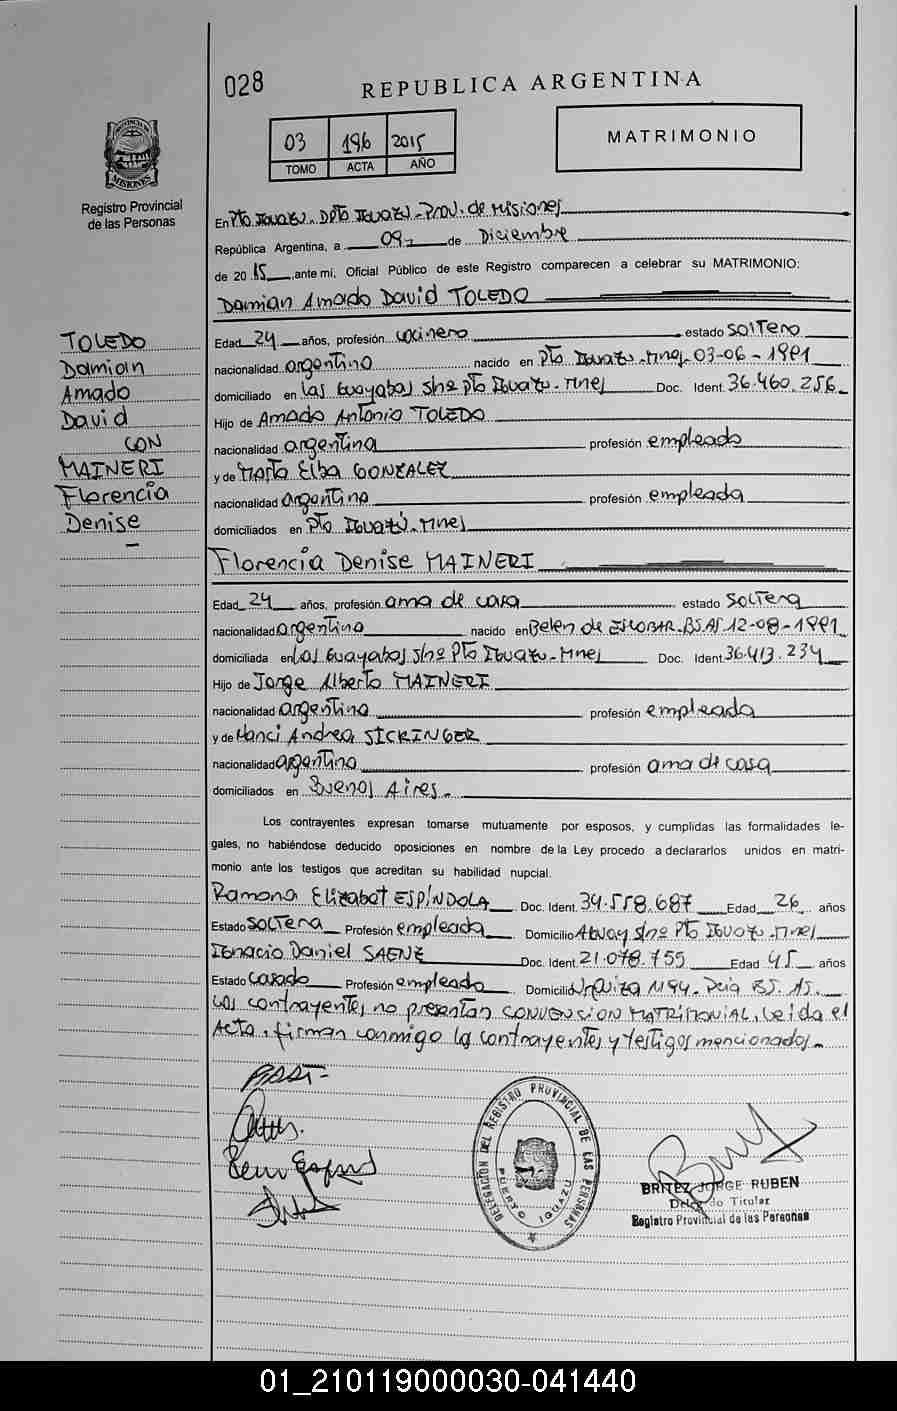 028
REPUBLICA ARGENTINA
03 196 2015
TOMO ACTA AÑO
MATRIMONIO
PROVINCIA DE
MISIONES
Registro Provincial
de las Personas
En Pto Iguazu. Dpto Iguazu-Prov. de Misiones
República Argentina, a 09 de Diciembre
de 2015, ante mí, Oficial Público de este Registro comparecen a celebrar su MATRIMONIO:
Damian Amado David TOLEDO
TOLEDO
Damian
Amado
David
CON
MAINERI
Florencia
Denise
Edad 24 años, profesión cocinero estado solTero
nacionalidad argentina nacido en pto Iguazu-Mnes 03-06-1991
domiciliado en Las Guayabas s/nº pto Iguazu-Mnes Doc. Ident. 36.460.256
Hijo de Amado Antonio TOLEDO
nacionalidad argentina profesión empleado
y de Marta Elba GONZALEZ
nacionalidad argentina profesión empleada
domiciliados en Pto Iguazú-Mnes
Florencia Denise MAINERI
Edad 24 años, profesión ama de casa estado solTera
nacionalidad argentina nacido en Belen de ESCOBAR-BS.AS 12-08-1991
domiciliada en Las Guayabas s/nº Pto Iguazu-Mnes Doc. Ident. 36.413.234
Hijo de Jorge Alberto MAINERI
nacionalidad argentina profesión empleada
y de Nanci Andrea SICKINGER
nacionalidad argentina profesión ama de casa
domiciliados en Buenos Aires.-
Los contrayentes expresan tomarse mutuamente por esposos, y cumplidas las formalidades le-
gales, no habiéndose deducido oposiciones en nombre de la Ley procedo a declararlos unidos en matri-
monio ante los testigos que acreditan su habilidad nupcial.
Ramona Elizabet ESPÍNDOLA Doc. Ident. 34.558.687 Edad 26 años
Estado solTera Profesión empleada Domicilio s/nº Pto Iguazu-Mnes
Ignacio Daniel SAENZ Doc. Ident. 21.078.755 Edad 45 años
Estado Casado Profesión empleado Domicilio Urquiza 1194. Pcia BS.AS.
Los contrayentes no presentan CONVENCION MATRIMONIAL. Leida el
Acta, firman conmigo los contrayentes y testigos mencionados.-
DELEGACION DEL REGISTRO PROVINCIAL DE LAS PERSONAS
PUERTO IGUAZU
BRITEZ JORGE RUBEN
Delegado Titular
Registro Provincial de las Personas
01_210119000030-041440